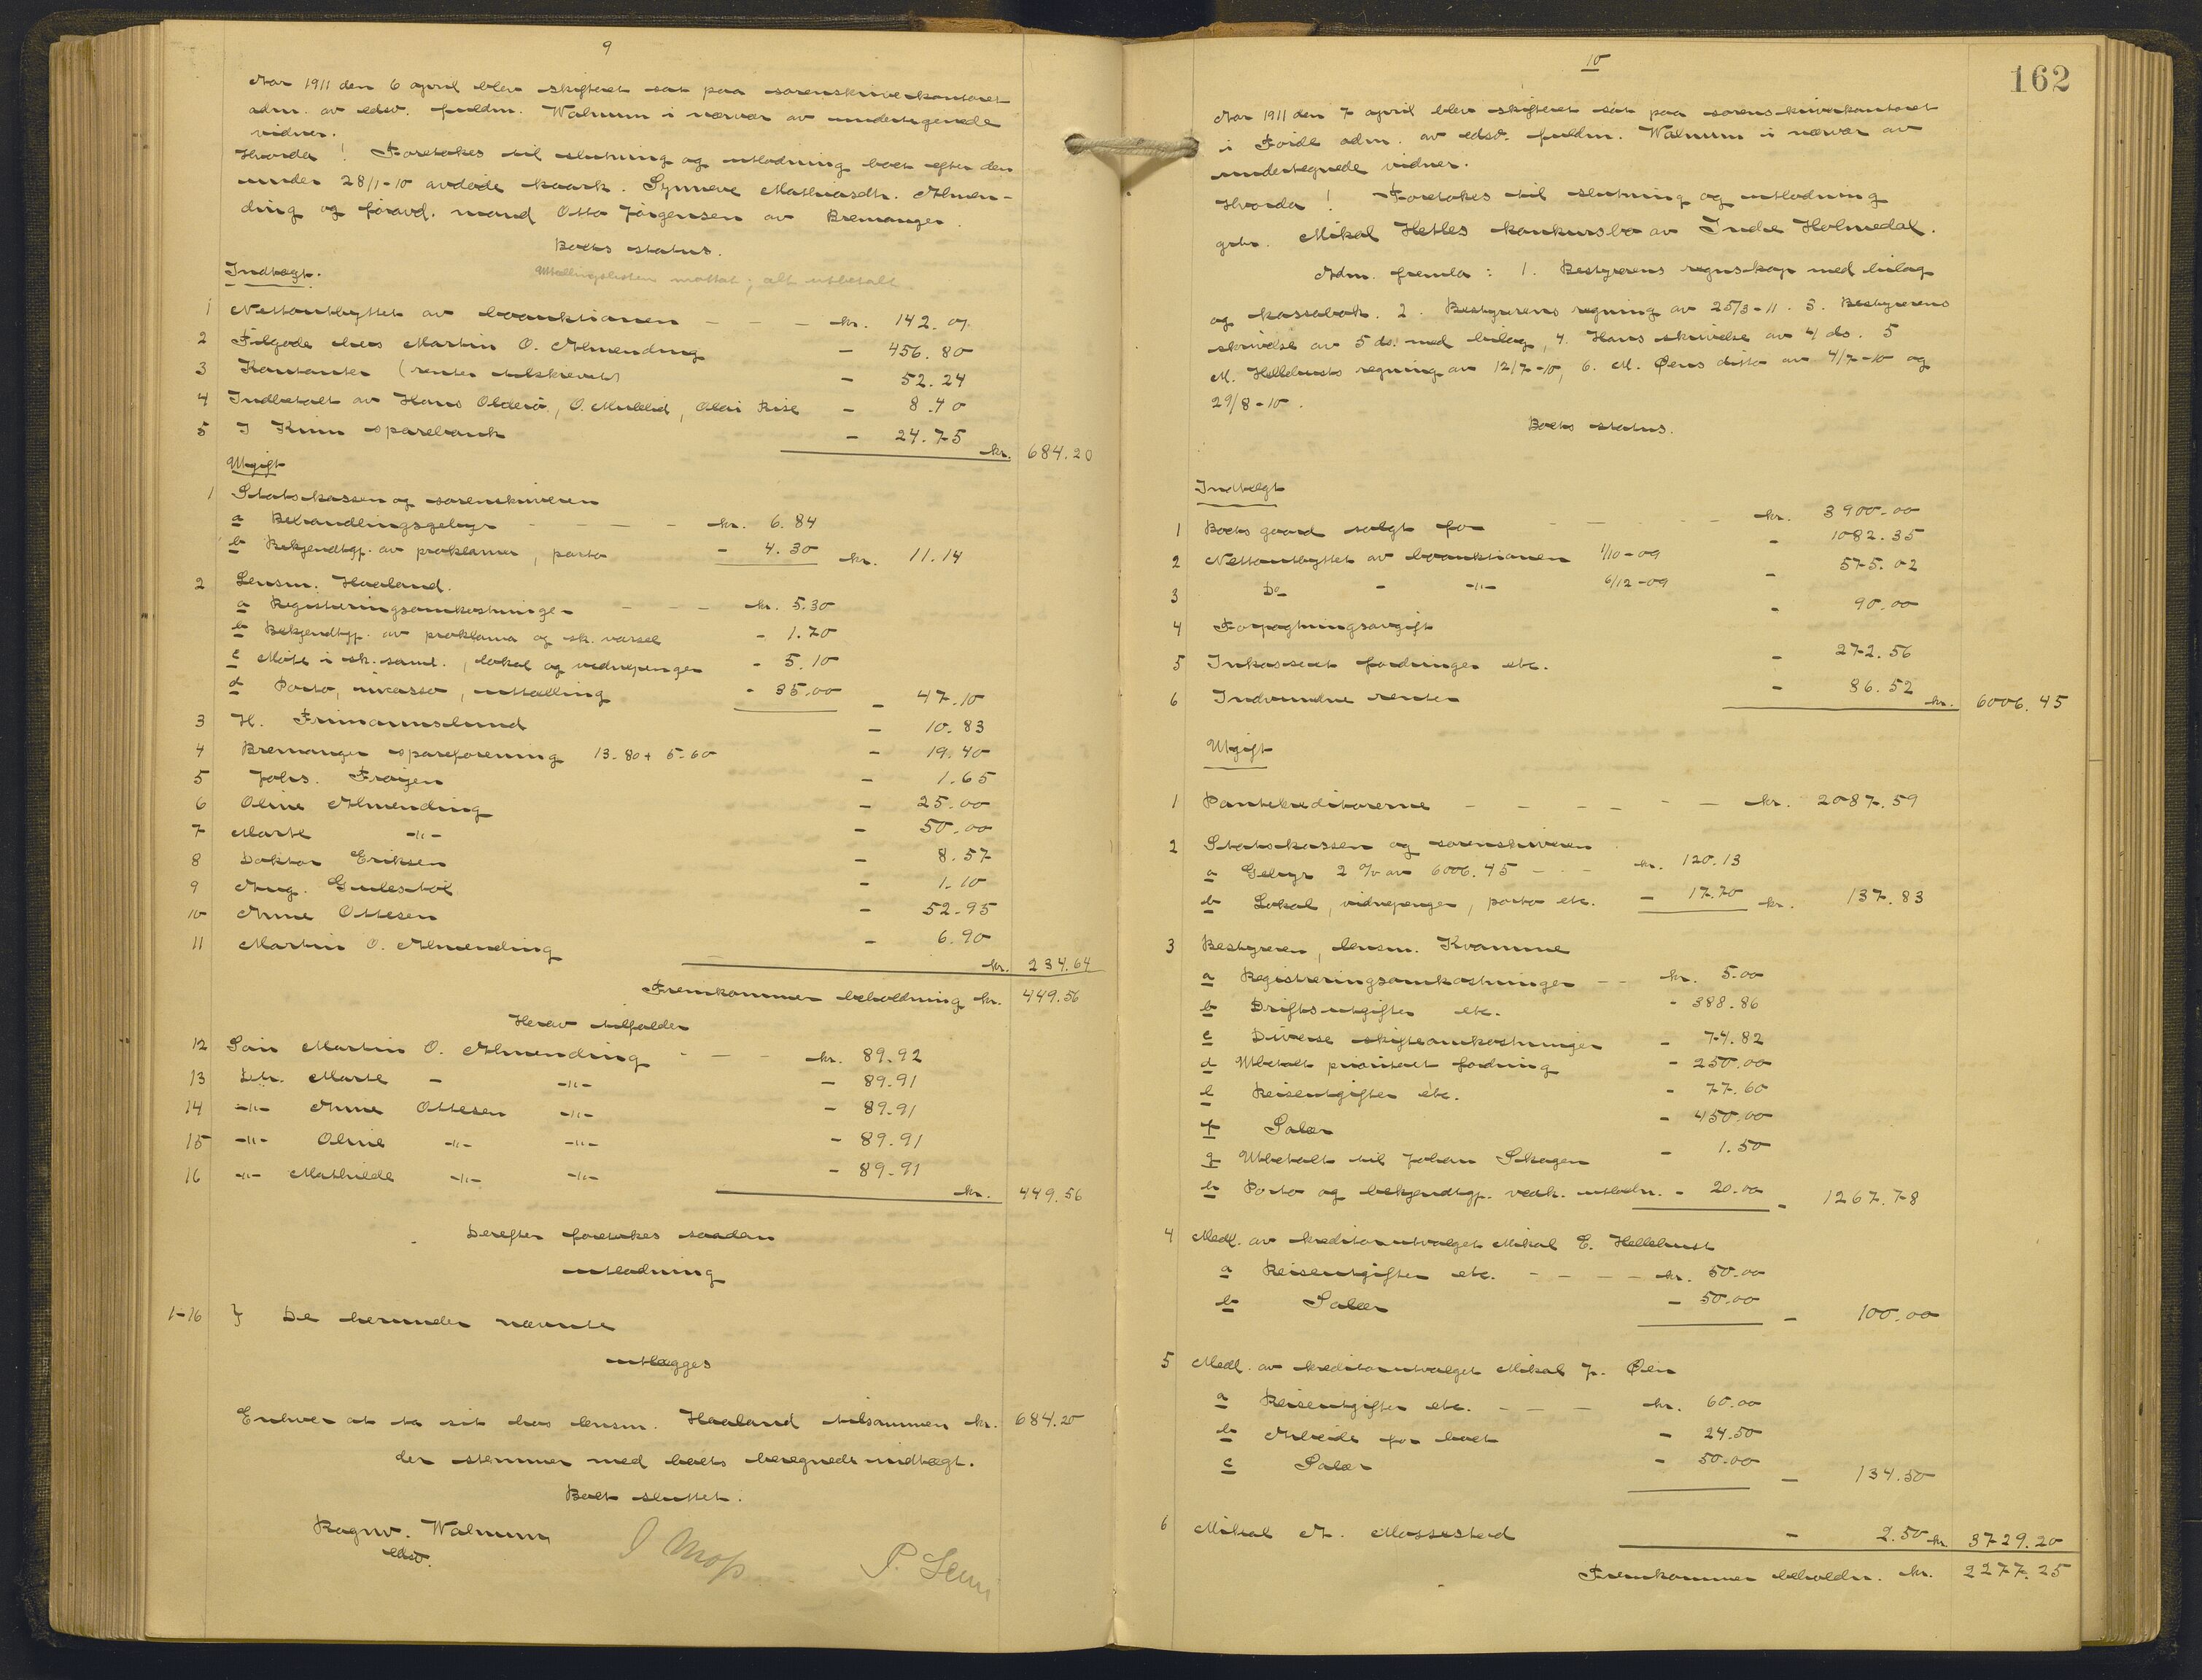 9
Aar 1911 den 6 april blev skifteret sat paa sorenskriverkontoret
adm. av edsv. fuldm. Walnum i nærvær av undertegnede
vidner.
Hvorda! Foretokes til slutning og utlodning boet efter den
under 28/1-10 avdøde kaark. Synneve Mathiasdtr. Almen-
ding og føravd. mand Otto Jørgensen av Bremanger.
Boets status.
Utællingslisten mottat; alt utbetalt
Indtægt.
1 Nettoutbyttet av boauktionen - - - kr. 142.07
2 Tilgode hos Martin O. Almending - 456.80
3 Kontanter (renter tilskrevet) - 52.24
4 Indbetalt av Hans Olderø, O. Myklid, Olai Rise - 8.40
5 I Kinn sparebank - 24.75 kr. 684.20
Utgift
1 Statskassen og sorenskriveren
a Behandlingsgebyr - - - - kr. 6.84
b Bekjendtgj. av proklama, porto - 4.30 kr. 11.14
2 Lensm. Haaland.
a Registreringsomkostninger - - - kr. 5.30
b Bekjendtgj. av proklama og sk. varsel - 1.70
c Møte i sk. saml., lokal og vidnepenger - 5.10
d Porto, incasso, uttælling - 35.00 - 47.10
3 H. Friis­mannslund - 10.83
4 Bremanger spareforening 13.80 + 5.60 - 19.40
5 Johs. Frøyen - 1.65
6 Oline Almending - 25.00
7 Marte -"- - 50.00
8 Doktor Eriksen - 8.57
9 Aug. Gulestøl - 1.10
10 Anne Ottesen - 52.95
11 Martin O. Almending - 6.90
kr. 234.64
Fremkommer beholdning kr. 449.56
Herav tilfalder
12 Søn Martin O. Almending - - - kr. 89.92
13 Dtr. Marte - -"- - 89.91
14 -"- Anne Ottesen -"- - 89.91
15 -"- Oline -"- -"- - 89.91
16 -"- Mathilde -"- -"- - 89.91
kr. 449.56
Derefter foretokes saadan
utlodning
1-16 } De herunder nævnte
utlægges
Enhver at ta sit hos lensm. Haaland tilsammen kr. 684.20
der stemmer med boets beregnede indtægt.
Boet sluttet.
Ragnv. Walnum
edsv.
I Moss P. Lem
10
162
Aar 1911 den 7 april blev skifteret sat paa sorenskriverkontoret
i Førde adm. av edsv. fuldm. Walnum i nærvær av
undertegnede vidner.
Hvorda! Foretokes til slutning og utlodning
gbr. Mikal Hetles konkursbo av Indre Holmedal.
Adm. fremla: 1. Bestyrerens regnskap med bilag
og kassabok. 2. Bestyrerens regning av 25/3-11. 3. Bestyrerens
skrivelse av 5 ds. med bilag, 4. Hans skrivelse av 4 ds. 5
M. Hellebusts regning av 12/7-10, 6. M. Øens ditto av 4/7-10 og
29/8-10.
Boets status.
Indtægt
1 Boets gaard solgt for - - - kr. 3900.00
2 Nettoutbyttet av boauktionen 1/10-09 - 1082.35
3 Do - -"- 6/12-09 - 575.02
4 Forpagtningsavgift - 90.00
5 Inkasseret fordringer etc. - 272.56
6 Indvundne renter - 86.52 kr. 6006.45
Utgift
1 Pantekreditorerne - - - - - - kr. 2087.59
2 Statskassen og sorenskriveren
a Gebyr 2 % av 6006.45 - - - kr. 120.13
b Lokal, vidnepenger, porto etc. - 17.70 kr. 137.83
3 Bestyreren, lensm. Kvamme
a Registreringsomkostninger - - kr. 5.00
b Driftsutgifter etc. - 388.86
c Diverse skifteomkostninger - 74.82
d Utbetalt prioritert fordring - 250.00
e Reiseutgifter etc. - 77.60
f Salær - 450.00
g Utbetalt til Johan Skagen - 1.50
h Porto og bekjendtgj. vedk. utlodn. - 20.00 - 1267.78
4 Medl. av kreditorutvalget Mikal E. Hellebust
a Reiseutgifter etc. - - - - kr. 50.00
b Salær - 50.00 - 100.00
5 Medl. av kreditorutvalget Mikal J. Øen
a Reiseutgifter etc. - - - kr. 60.00
b Arbeide for boet - 24.50
c Salær - 50.00 - 134.50
6 Mikal A. Massestad - 2.50 kr. 3729.20
Fremkommer beholdn. kr. 2277.25